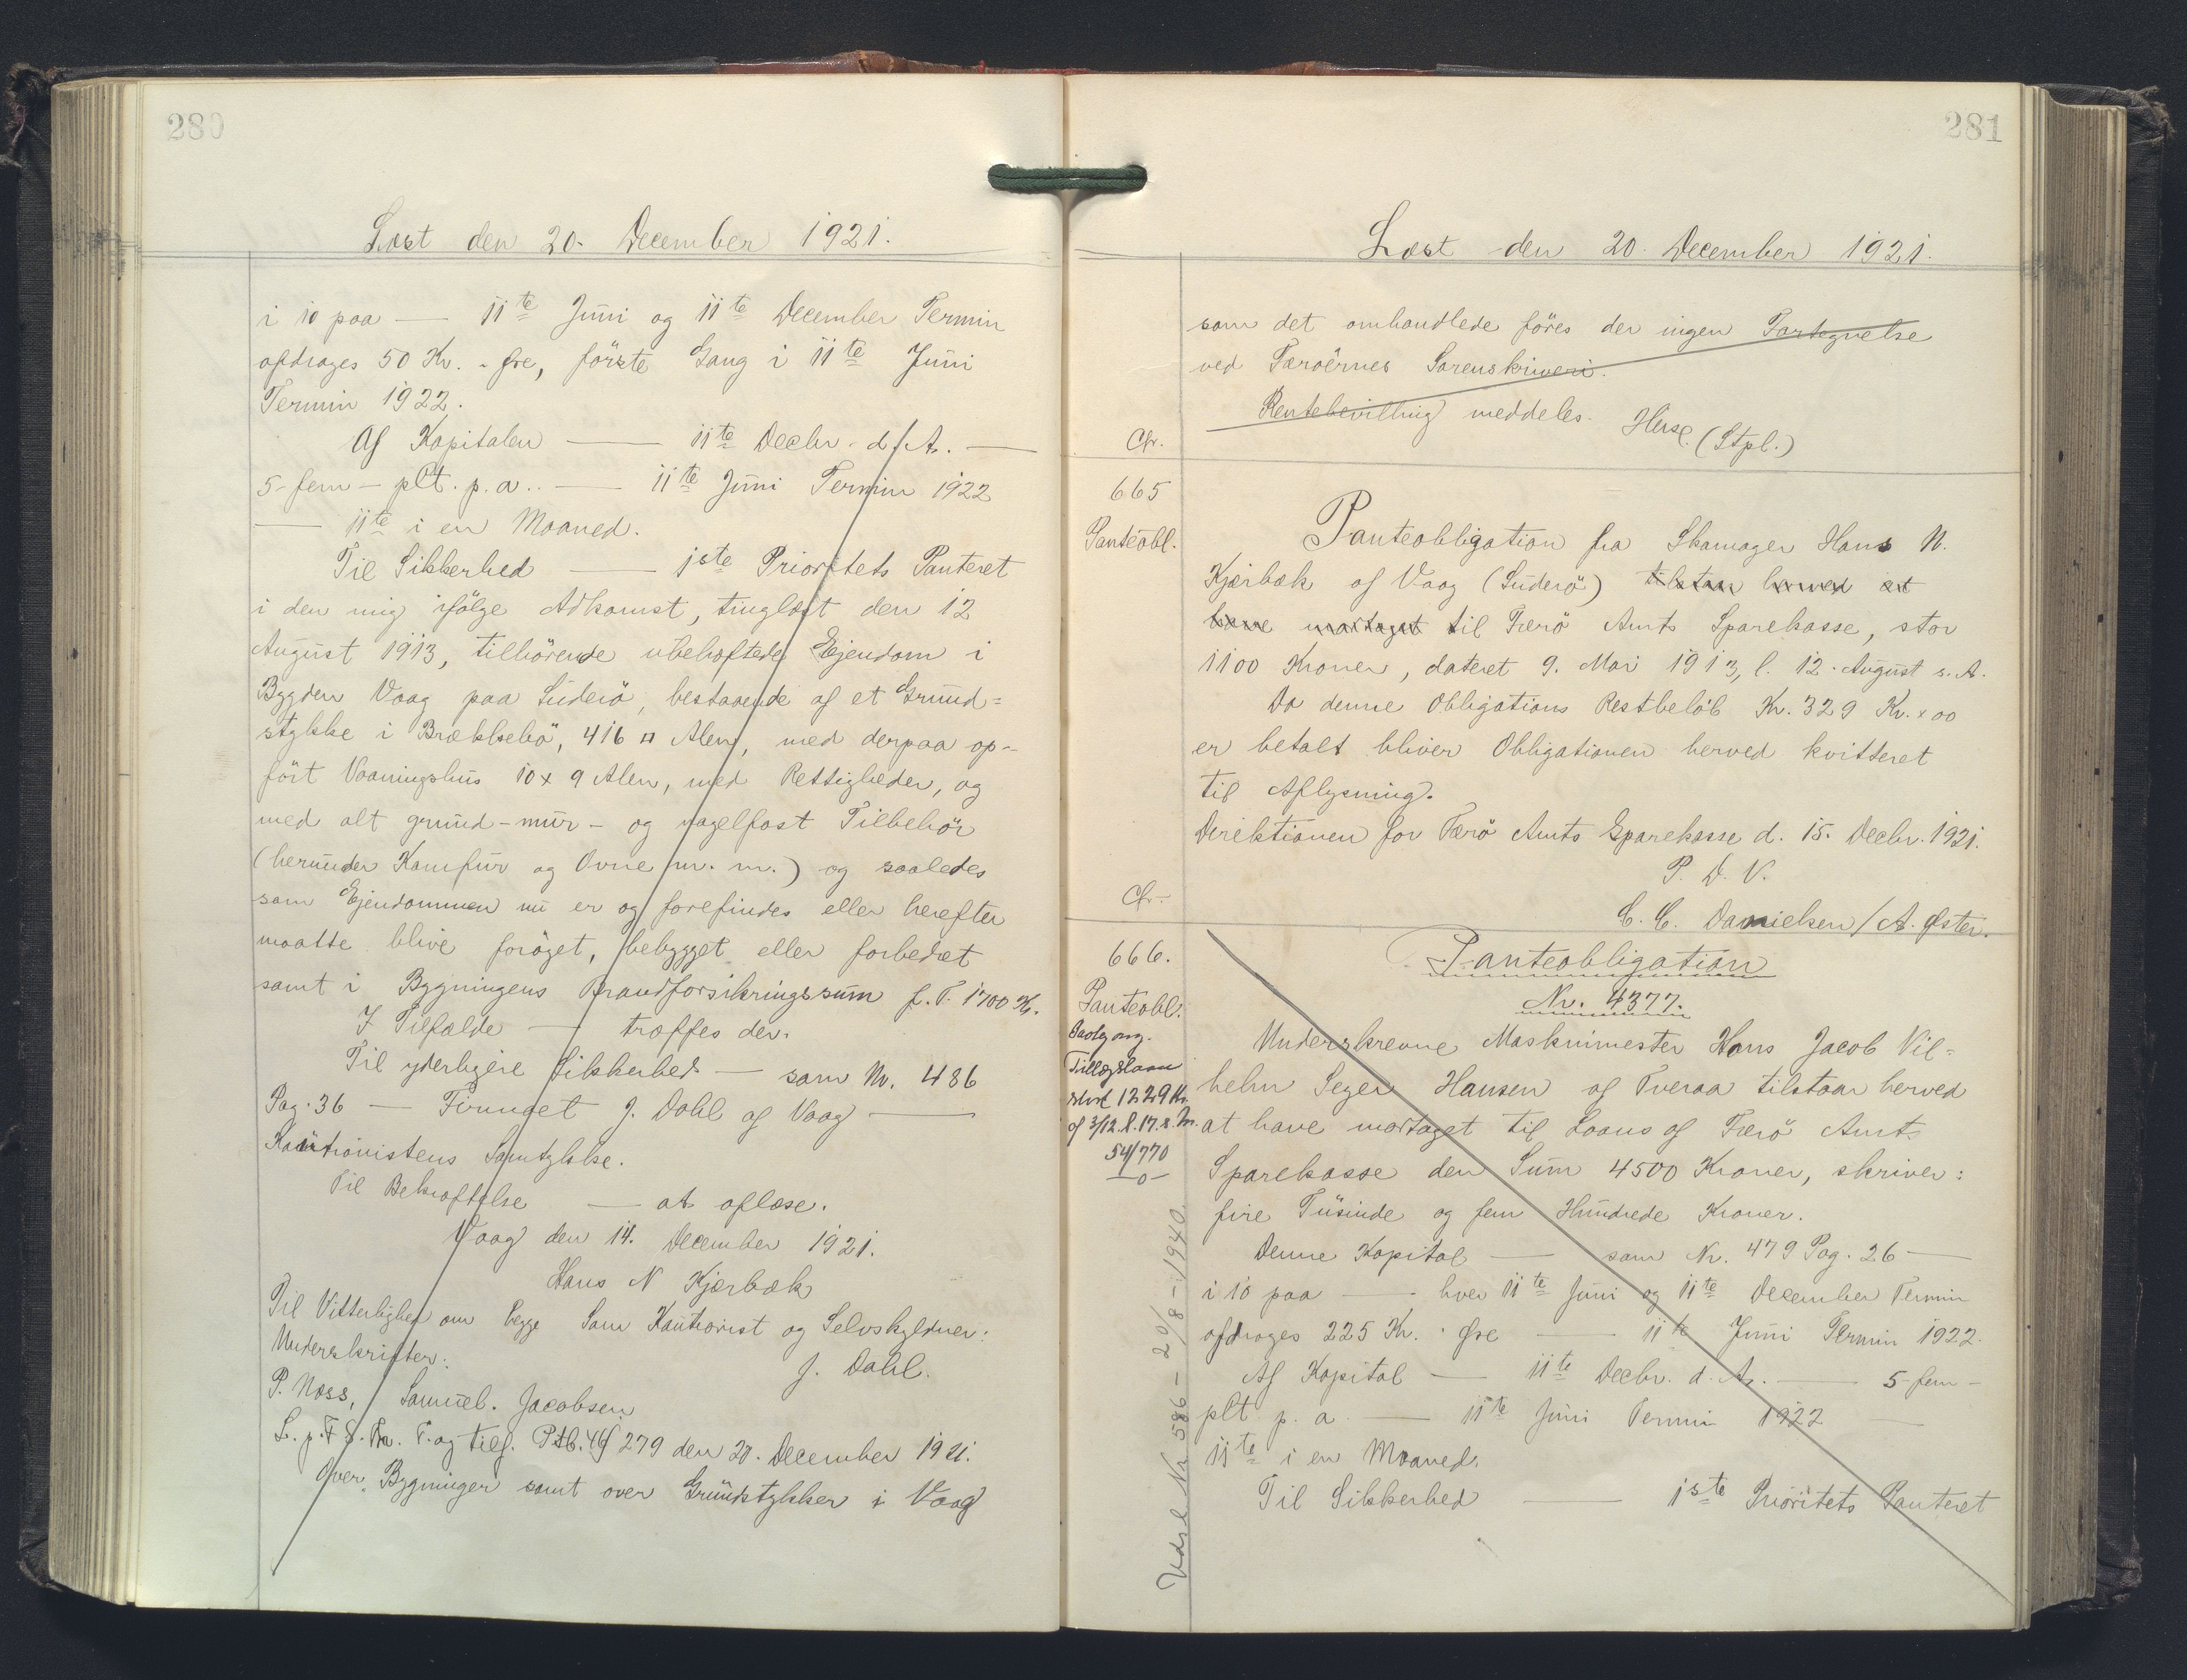 280
Læst den 20. December 1921.
i 10 paa — 11te Juni og 11te December Termin
afdrages 50 Kr. - Øre, förste Gang i 11te Juni
Termin 1922.
Af Kapitalen — 11te Decbr. d. A. —
5 - fem - pCt. p. a. . — 11te Juni Termin 1922
— 11te i en Maaned.
Til Sikkerhed — 1ste Prioritets Panteret
i den mig ifölge Adkomst, tinglæst den 12
August 1913, tilhörende ubehæftede Ejendom i
Bygden Vaag paa Suderö, bestaaende af et Grund=
stykke i Brækkebö, 416 □ Alen, med derpaa op-
fört Vaaningshus 10 x 9 Alen, med Rettigheder, og
med alt grund-mur- og nagelfast Tilbehör
(herunder Kamfur og Ovne m. m.) og saaledes
som Ejendommen nu er og forefindes eller herefter
maatte blive foröget, bebygget eller forbedret
samt i Bygningens Brandforsikringssum f. T. 1700 Kr.
I Tilfælde — træffes der.
Til yderligere Sikkerhed — som Nr. 486
Pag. 36 — Firmaet J. Dahl af Vaag —
Kautionistens Samtykke.
Til Bekræftelse — at aflæse.
Vaag den 14. December 1921.
Hans N Kjærbæk
Til Vitterlighed om begge Som Kautionist og Selvskyldner:
Underskrifter: J. Dahl.
P. Næss, Samuel. Jacobsen
L. p. F. S. Kr. T. og tilf. Ptb. 46/279 den 20. December 1921.
Over Bygninger samt over Grundstykker i Vaag
281
Læst den 20. December 1921.
som det omhandlede föres der ingen Fortegnelse
ved Færöernes Sorenskriveri.
Rentebevilling meddeles. (Stpl.)
Cfr.
665
Panteobl.
Panteobligation fra Skomager Hans N.
Kjærbæk af Vaag (Suderö) tilstaar herved at
have modtaget til Færö Amts Sparekasse, stor
1100 Kroner, dateret 9. Mai 1913, l. 12. August s. A.
Da denne Obligations Restbelöb Kr. 329 Kr. x 00
er betalt bliver Obligationen herved kvitteret
til Aflysning.
Direktionen for Færö Amts Sparekasse d. 15. Decbr. 1921.
P. D. V.
C. C. Danielsen / A. Øster.
Cfr.
666.
Panteobl.
Tillægslaan
stort 1229 Kr.
af 3/12. l. 17. s. M.
54/770
-0-
Panteobligation
Nr. 4377.
Underskrevne Maskinmester Hans Jacob Vil=
helm Seger Hansen af Tveraa tilstaar herved
at have modtaget til Laans af Færö Amts
Sparekasse den Sum 4500 Kroner, skriver:
fire Tusinde og fem Hundrede Kroner.
Denne Kapital — som Nr. 479 Pag. 26 —
i 10 paa — hver 11te Juni og 11te December Termin
afdrages 225 Kr. - Øre — 11te Juni Termin 1922.
Af Kapital — 11te Decbr. d. A. — 5 - fem -
pCt. p. a. — 11te Juni Termin 1922 —
11te i en Maaned.
Til Sikkerhed — 1ste Prioritets Panteret
Udsl. Nr 586 - 20/8 - 1940.